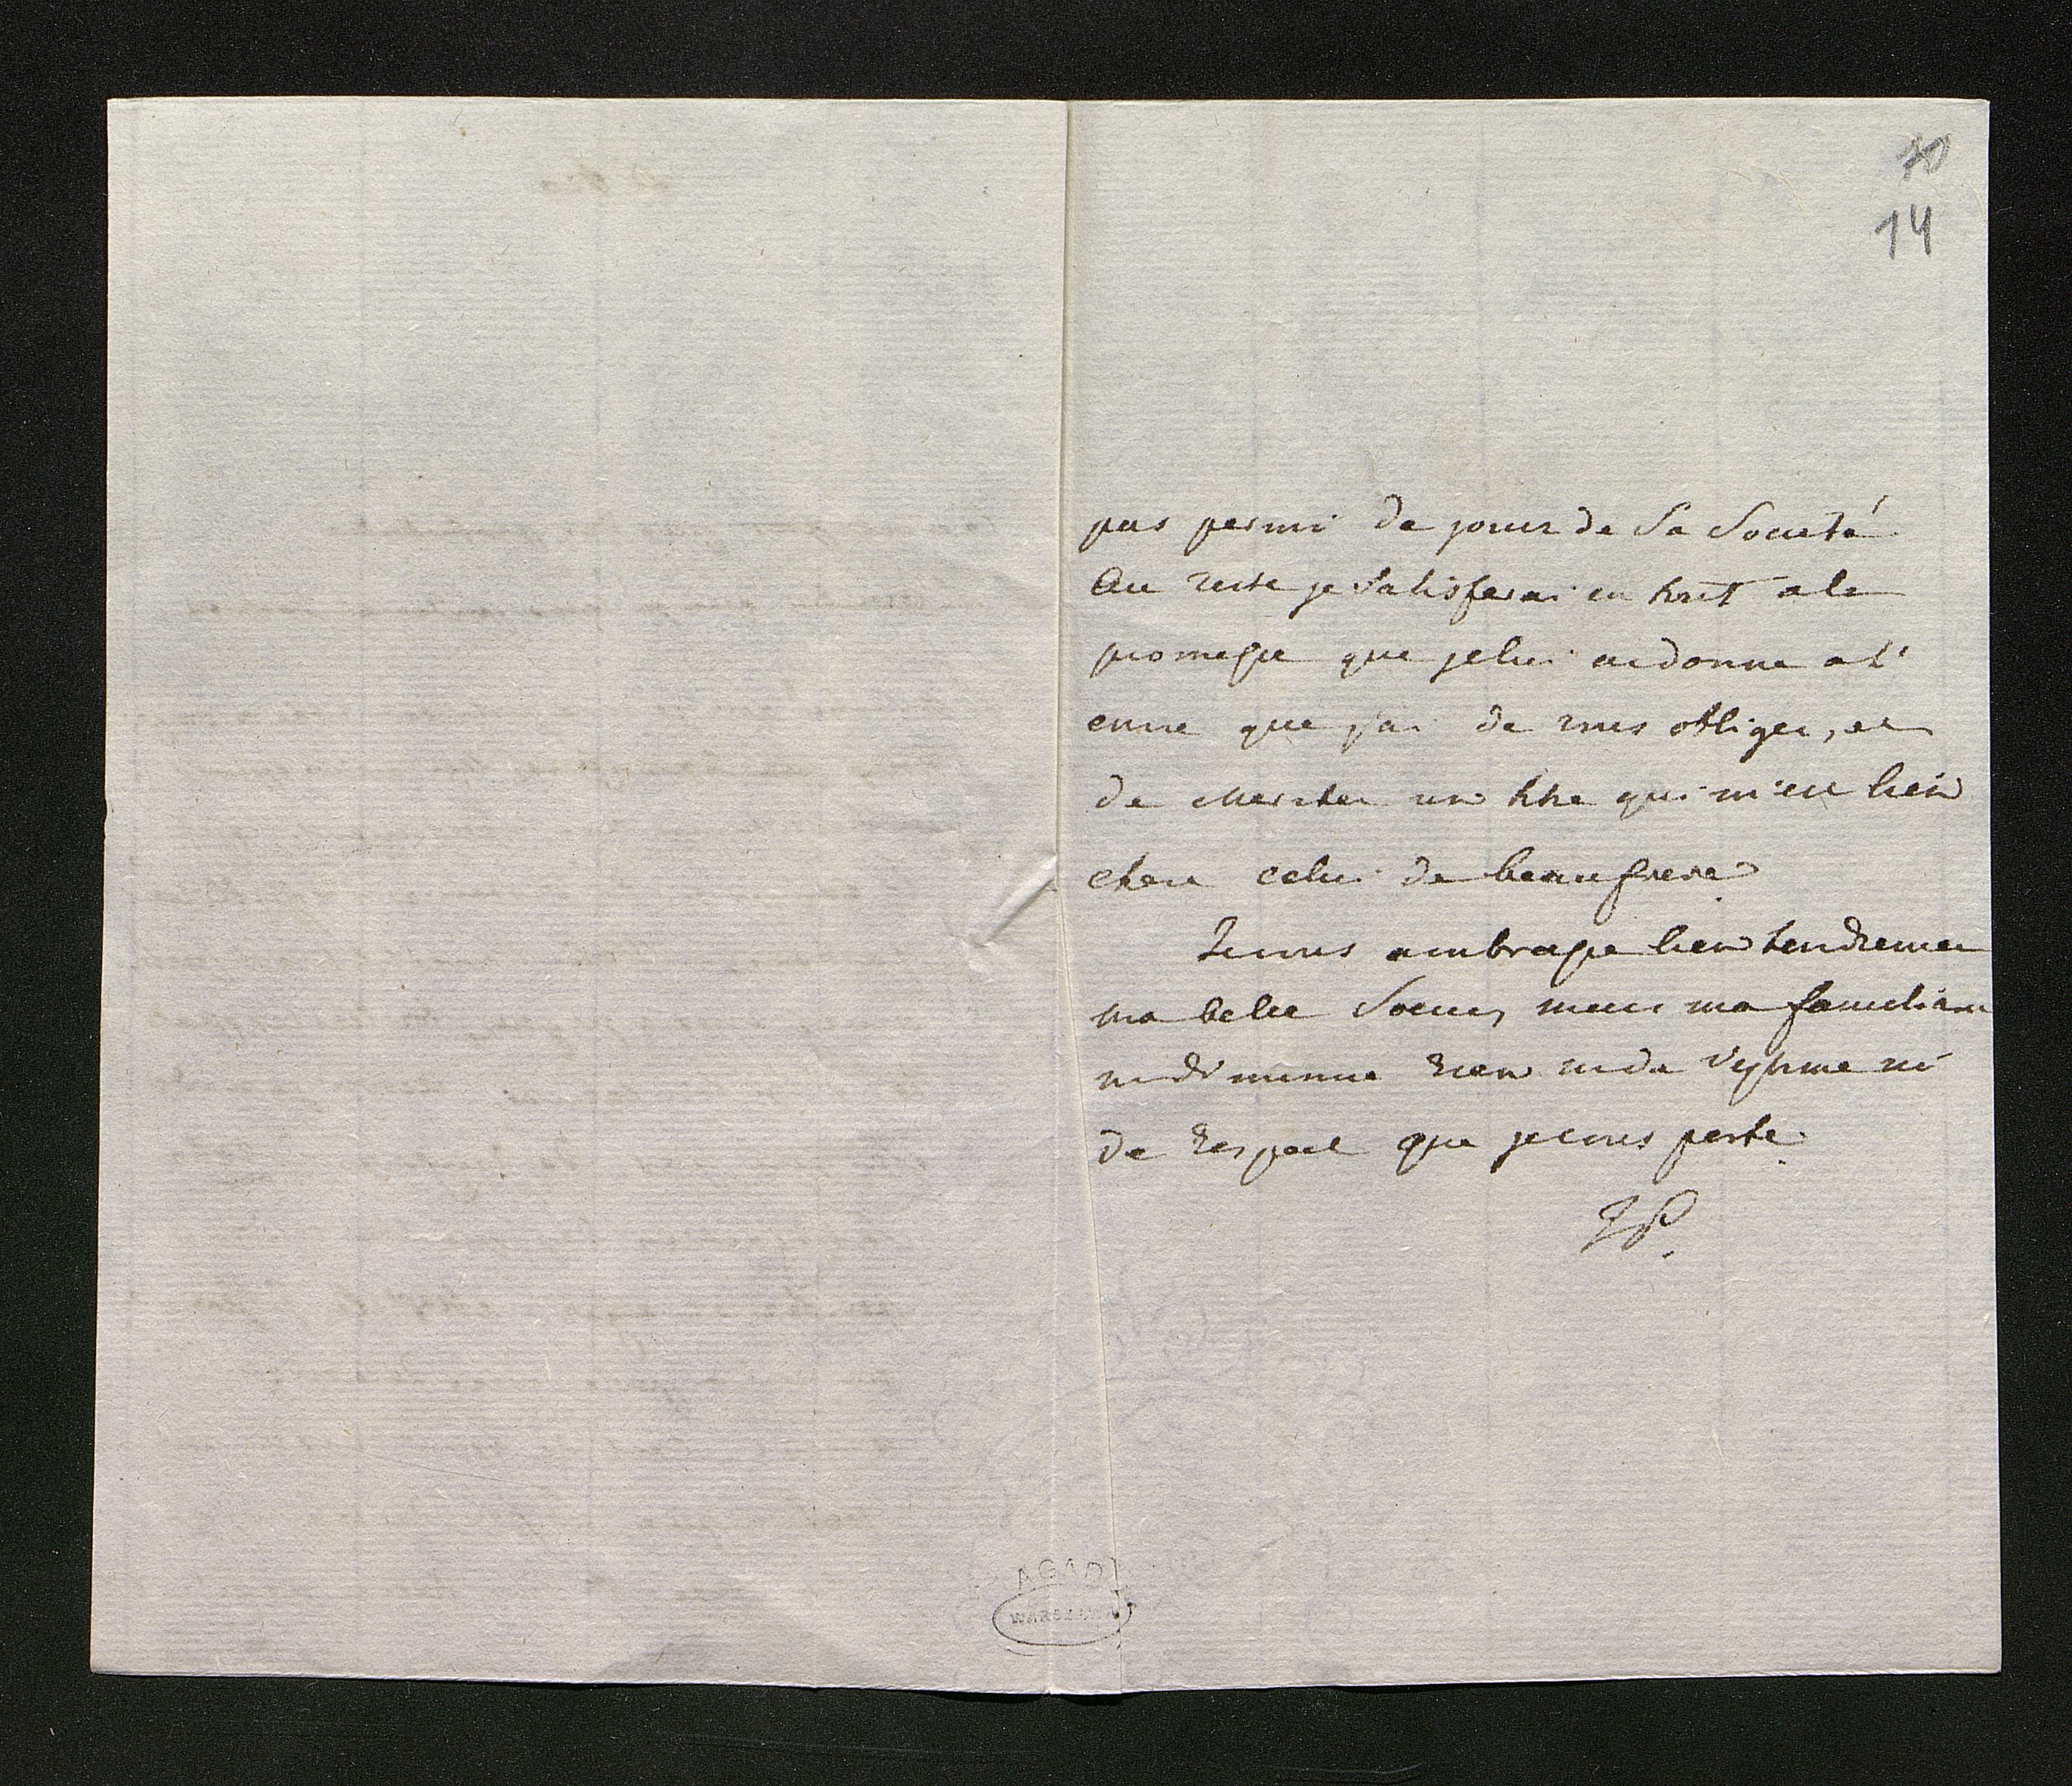 70
14
pas permi de jouir de Sa Societé
Au reste je Satisferai en tout a la
promesse que je lui ai donne a l'
envie que j'ai de vous obliger, et
de meriter un titre qui m'est bien
chere celui de beaufrere
Je vous ambrasse bien tendremen
ma belle Soeur, mais ma familiari
ne diminue rien ni de l'estime ni
de Respect que je vous porte.
AGAD
WARSZAWA